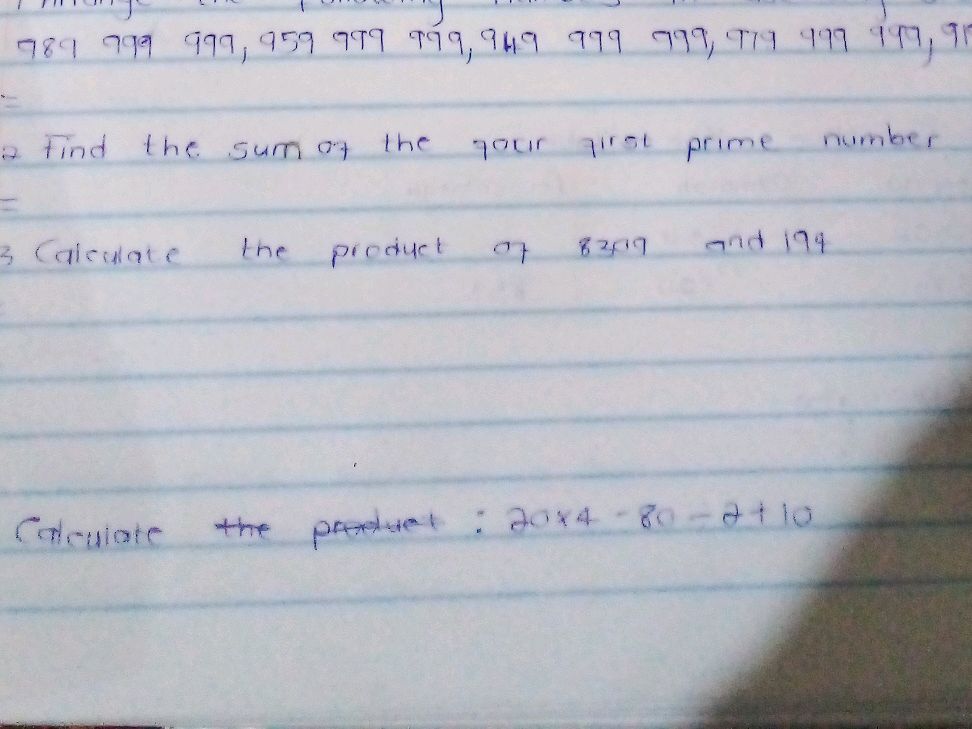 the following numbers in
989 999 999, 959 999 999, 949 999 999, 979 999 999, 9
=
2 Find the sum of the four first prime number
=
3 Calculate the product of and 194
Calculate the product : 20x4 - 80 - 2 + 10